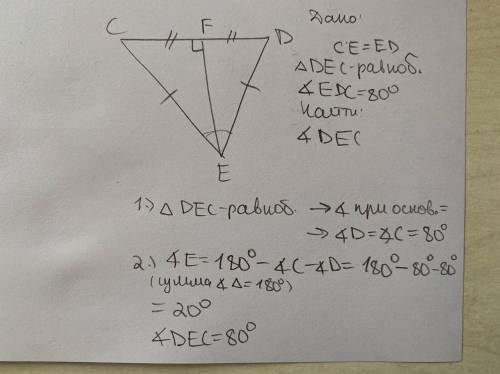 C F D
Дано:
CE=ED
△DEC-равноб.
∡EDC=80°
Найти:
∡DEC
E
1.) △DEC-равноб. → ∡ при основ.=
→ ∡D=∡C=80°
2.) ∡E=180°-∡C-∡D= 180°-80°-80°
(сумма ∡△=180°)
= 20°
∡DEC=80°